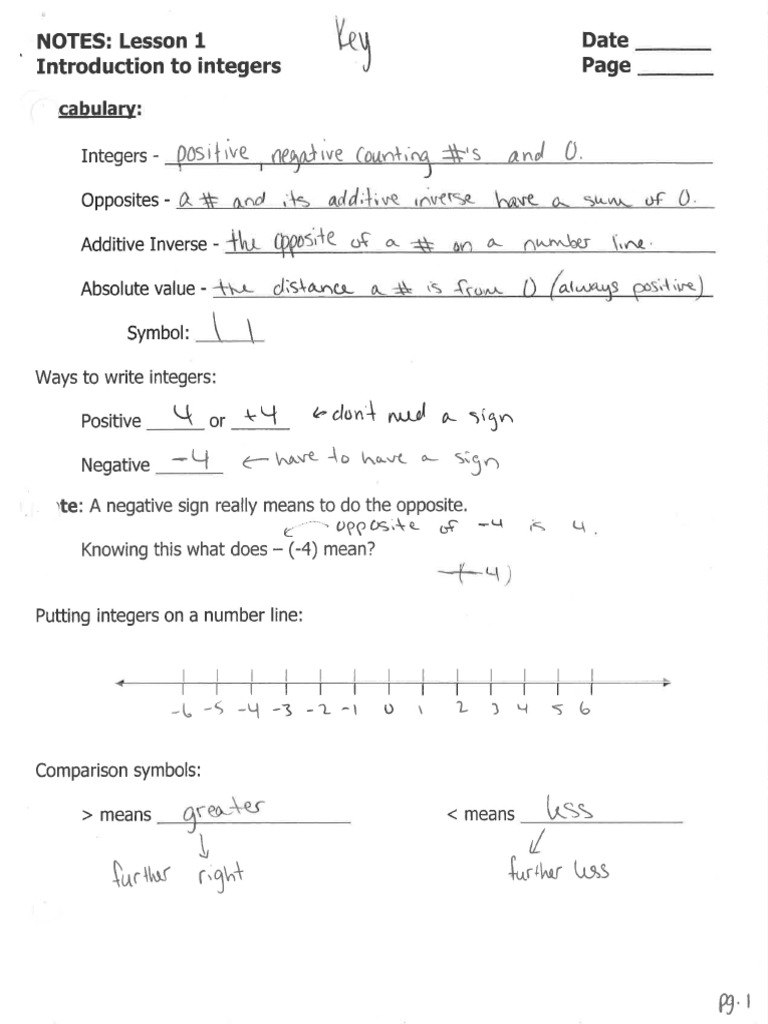 NOTES: Lesson 1 Key Date
Introduction to integers Page
cabulary:
Integers - positive, negative counting #'s and 0.
Opposites - a # and its additive inverse have a sum of 0.
Additive Inverse - the opposite of a # on a number line.
Absolute value - the distance a # is from 0 (always positive)
Symbol: | |
Ways to write integers:
Positive 4 or +4 ← don't need a sign
Negative -4 ← have to have a sign
te: A negative sign really means to do the opposite.
opposite of -4 is 4.
Knowing this what does – (-4) mean?
-(-4)
Putting integers on a number line:
-6 -5 -4 -3 -2 -1 0 1 2 3 4 5 6
Comparison symbols:
> means greater < means less
further right further less
pg. 1